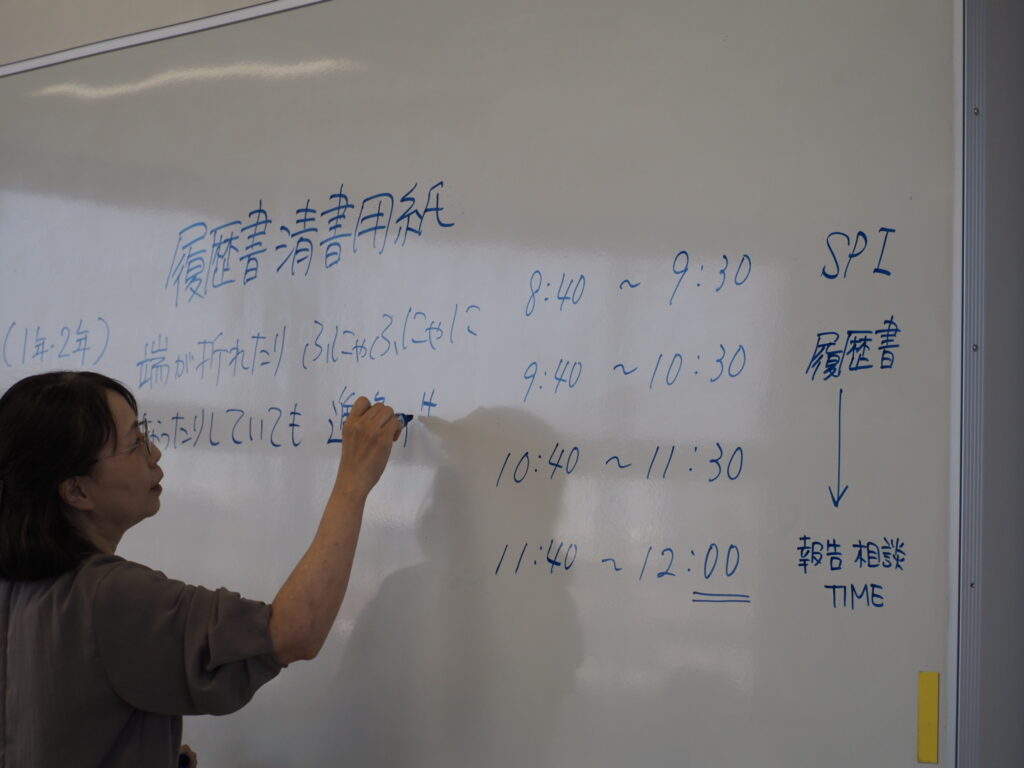 履歴書清書用紙
(1年・2年)
端が折れたり ふにゃふにゃに
なったりしていても
8:40 ~ 9:30 SPI
9:40 ~ 10:30 履歴書
10:40 ~ 11:30
11:40 ~ 12:00 報告 相談
TIME